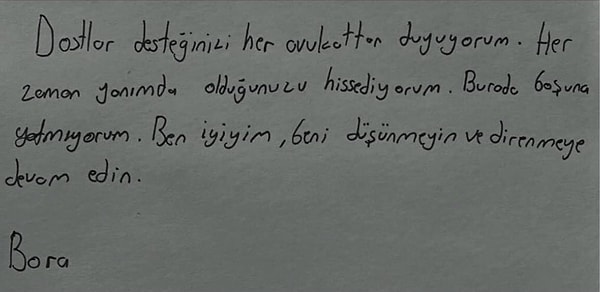 Dostlar desteğinizi her avukattan duyuyorum. Her
zaman yanımda olduğunuzu hissediyorum. Burada boşuna
yatmıyorum. Ben iyiyim, beni düşünmeyin ve direnmeye
devam edin.
Bora